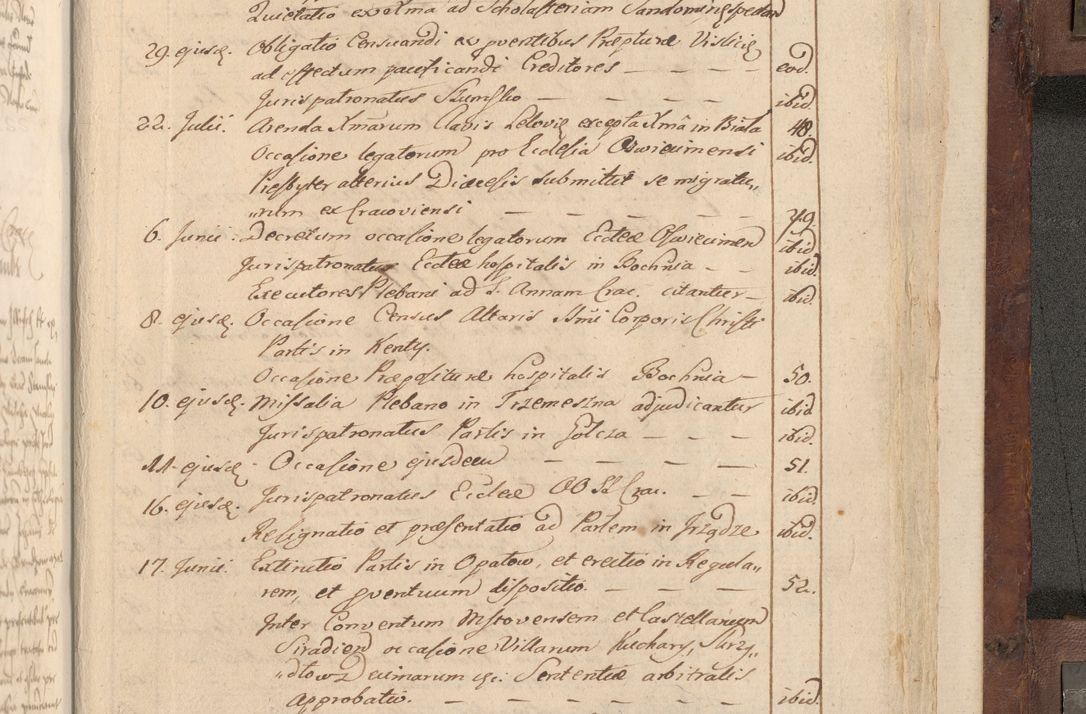 Quietatio ex Xma ad Scholasteriam Sandomir spectand
29. ejusd. Obligatio Censuandi ex pventibus Præpturæ Vislicie
ad effectum pacificandi Creditores — — — — eod.
Jurispatronatus — — — — ibid.
22. Julii. Arenda Xmarum Clavis Lelovie excepta Xma in Biała 48.
Occasione legatorum pro Ecclesia Oswiecimensi ibid.
Presbyter alterius Diæcesis submittit se migratu„
„rum ex Cracoviensi — — — — 49.
6. Junii. Decretum occasione legatorum Eccleæ Oswiecimen ibid
Jurispatronatus Eccleæ hospitalis in Bochnia — — ibid.
Executores Plebani ad S. Annam Crac. citantur — ibid.
8. ejusd. Occasione Census Altaris Ssmi Corporis Christi
Partis in Kenty.
Occasione Præposituræ hospitalis Bochnia — 50.
10. ejusd. Missalia Plebano in Trzemeszna adjudicantur ibid
Jurispatronatus Partis in Golcza — — — ibid.
11. ejusd. Occasione ejusdem — — — — 51.
16. ejusd. Jurispatronatus Eccleæ OO SS Crac. — — ibid.
Resignatio et præsentatio ad Partem in Jrządze ibid.
17. Junii. Extinctio Partis in Opatow, et erectio in Regula„
rem, et pventuum dispositio. — — — — 52.
Inter Conventum Mstovensem et Castellanum
Siradien occasione Villarum Kuchary, Skrzy„
„dlow Decimarum &c: Sententiæ arbitralis
Approbatio. — — — — — ibid.